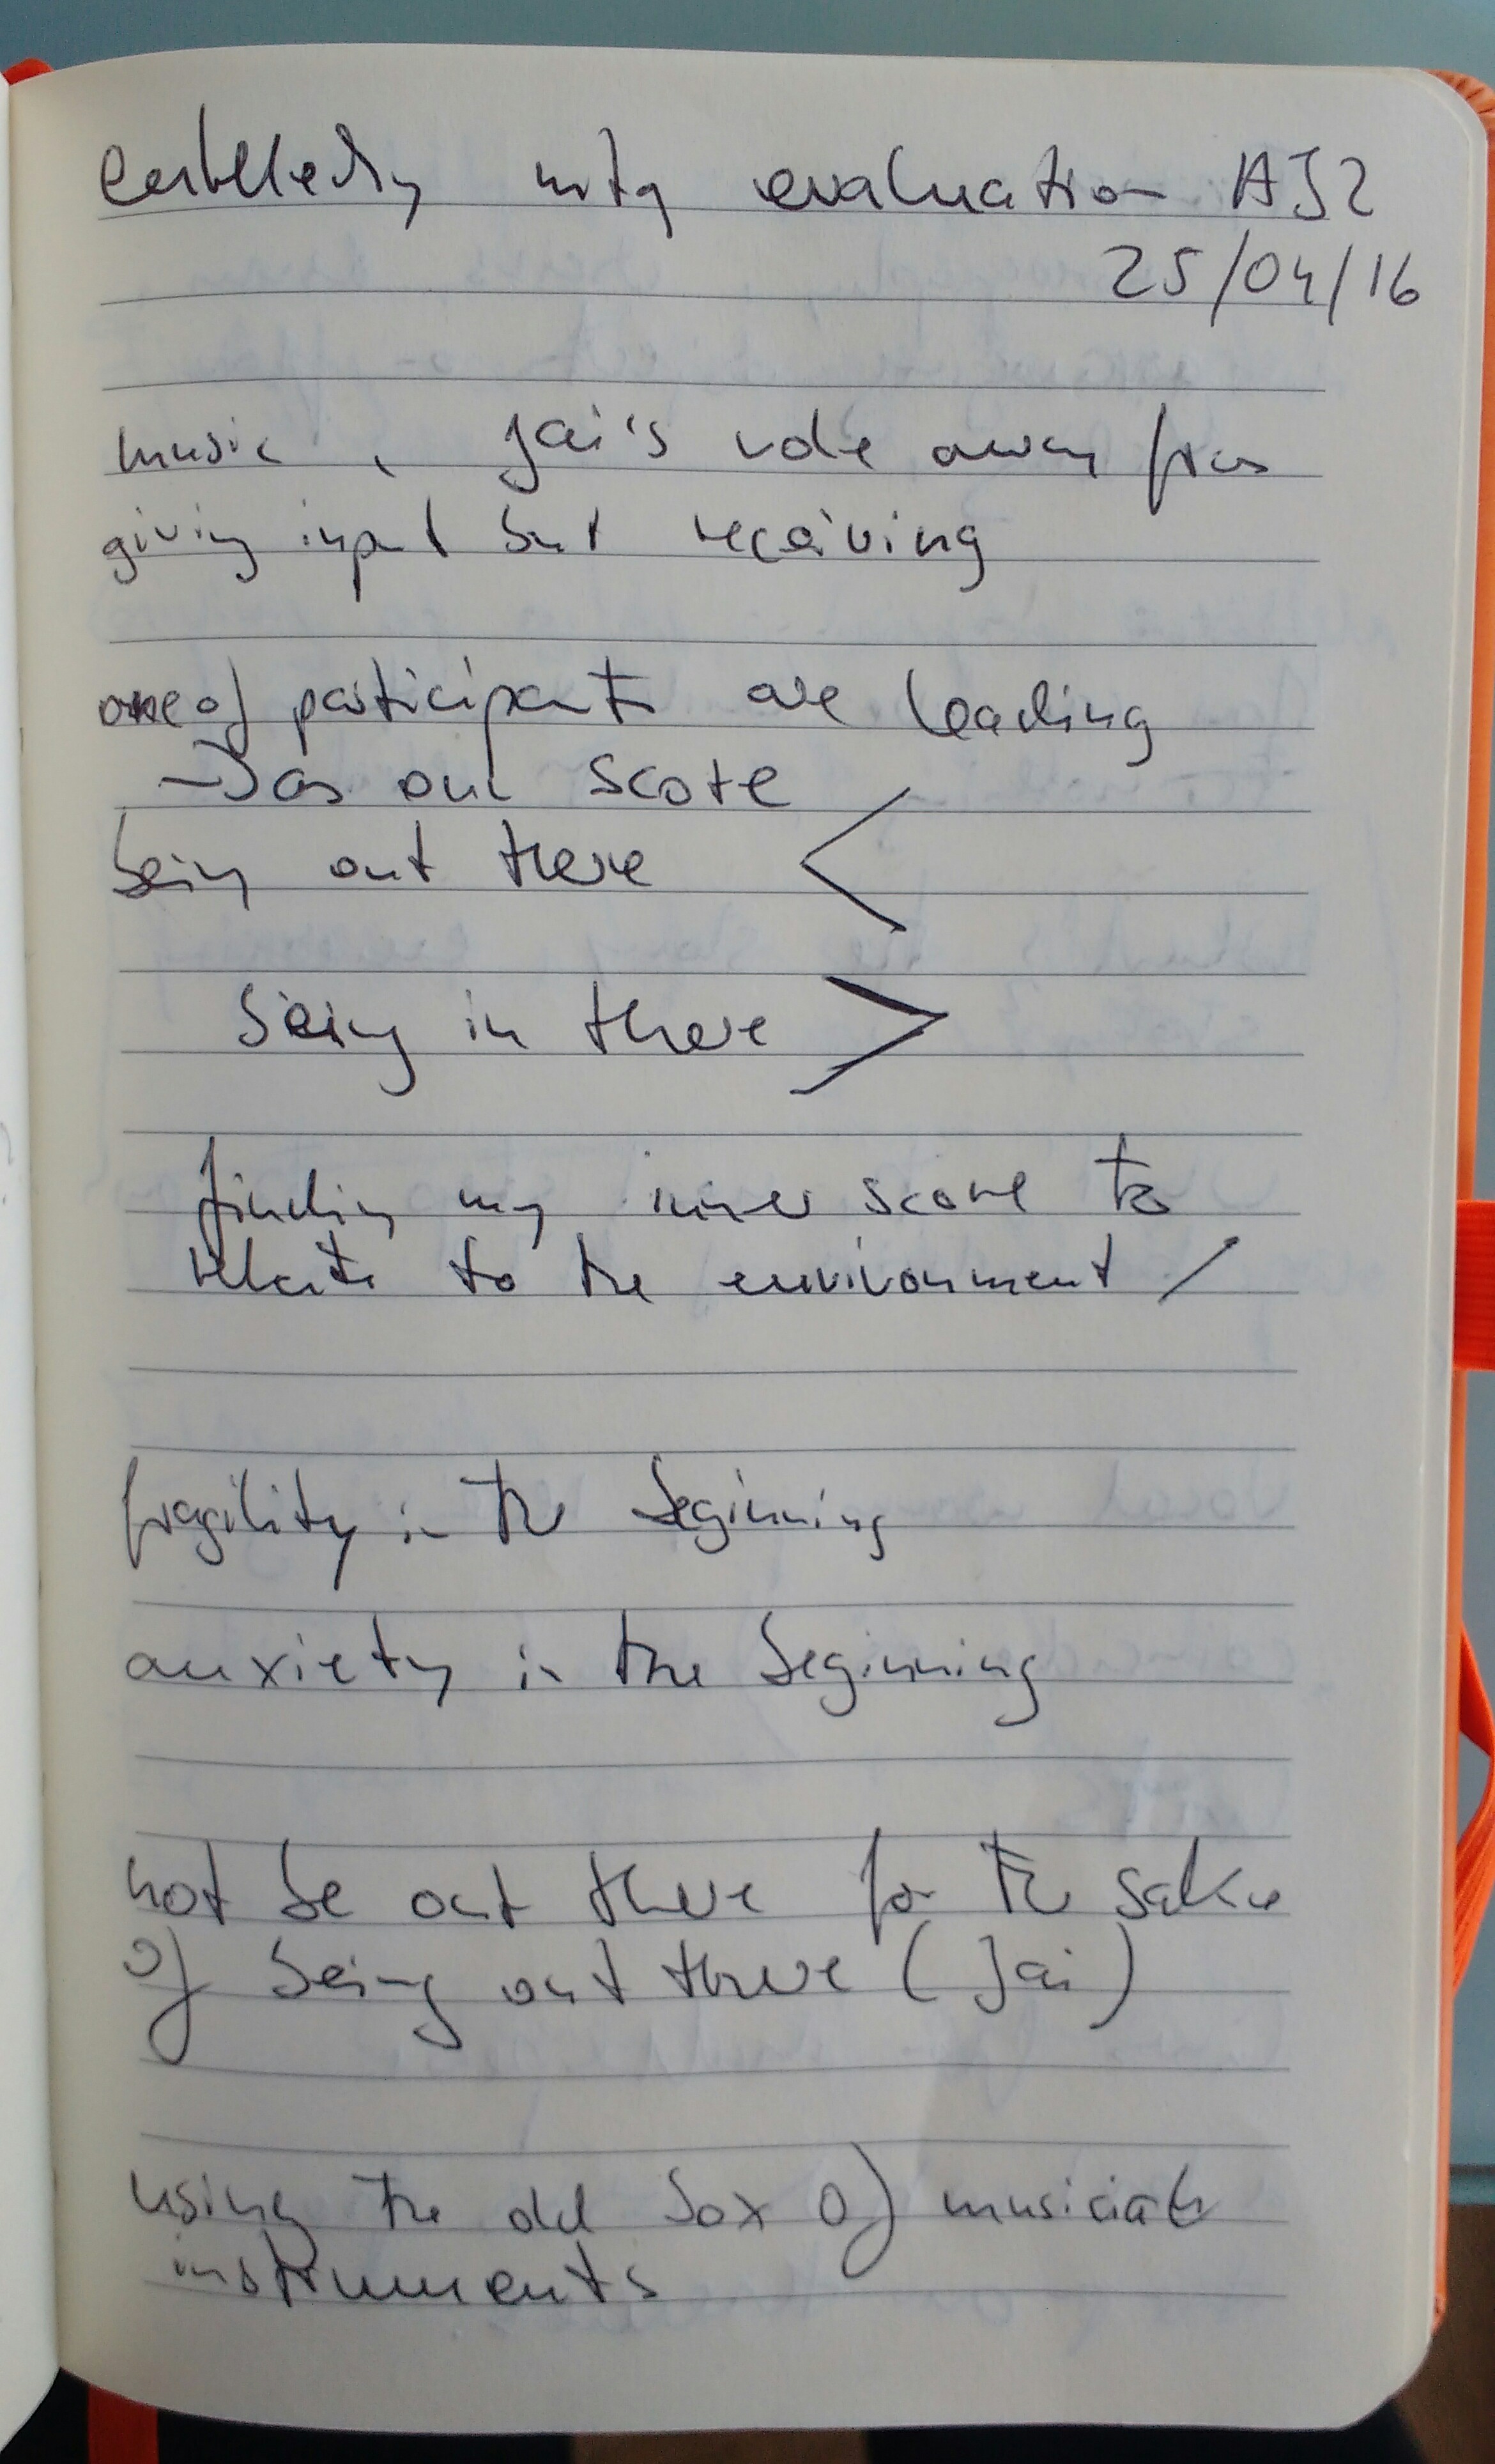 mtg evaluation AJ2
25/04/16
music, Jai's role away from
giving input but receiving
one of participants are leading
→ as our score
being out there <
being in there >
finding my inner score to
relate to the environment /
fragility in the beginning
anxiety in the beginning
not be out there for the sake
of being out there (Jai)
using the old box of
instruments